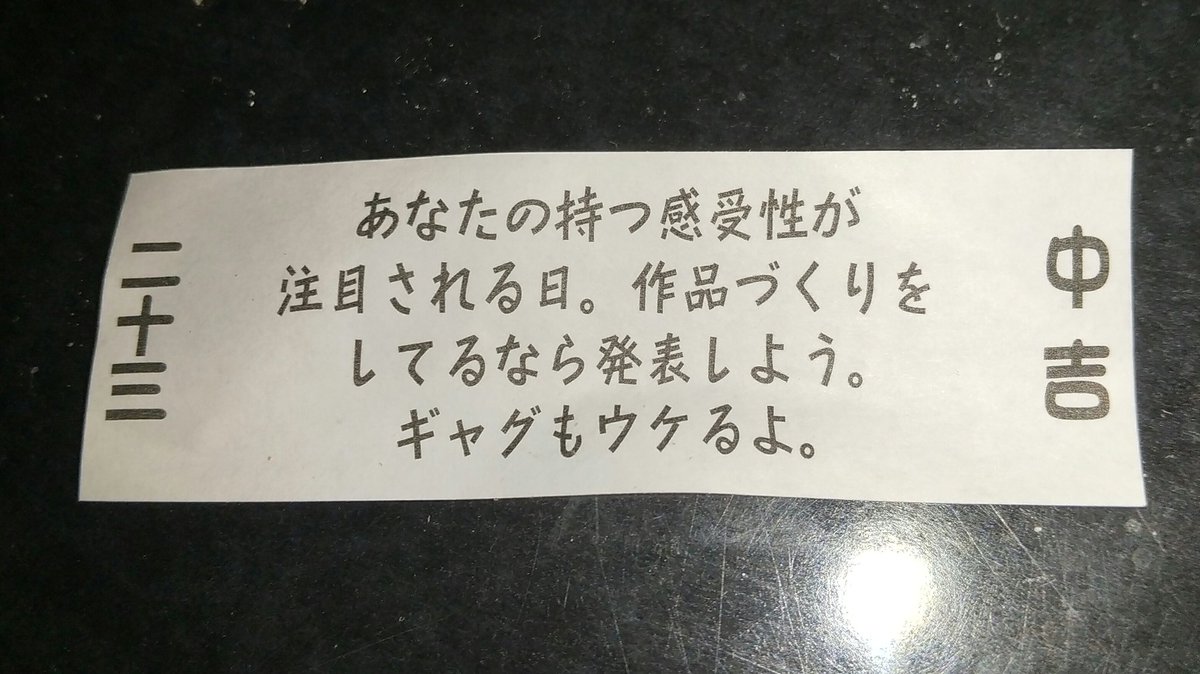 中吉
あなたの持つ感受性が
注目される日。作品づくりを
してるなら発表しよう。
ギャグもウケるよ。
二十三